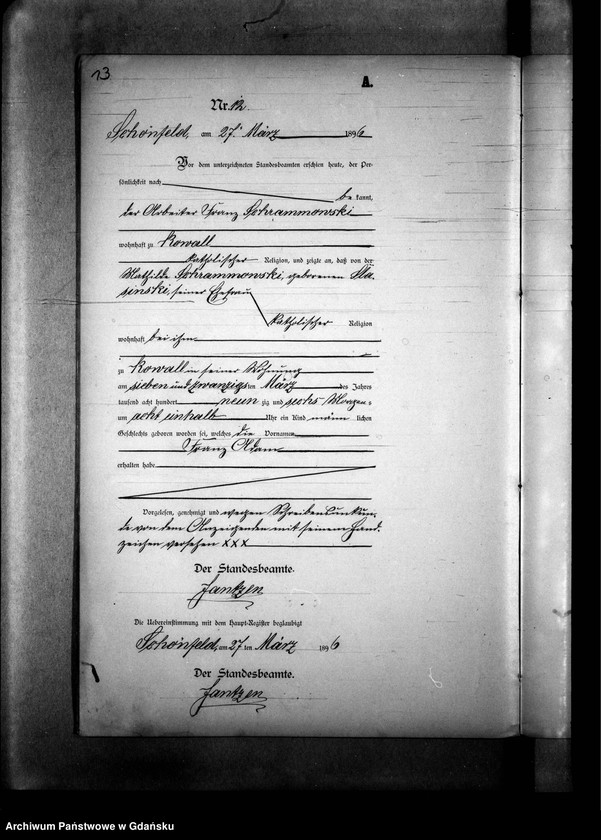 13
A.
Nr. 12.
Schönfeld, am 27. März 1896
Vor dem unterzeichneten Standesbeamten erschien heute, der Per-
sönlichkeit nach
be kannt,
der Arbeiter Franz Schrammowski
wohnhaft zu Kowall
katholischer Religion, und zeigte an, daß von der
Mathilde Schrammowski, geborenen
seiner Ehefrau
katholischer Religion
wohnhaft bei ihm
zu Kowall in seiner Wohnung
am sieben und zwanzigsten März des Jahres
tausend acht hundert neun zig und sechs Morgens
um acht einhalb Uhr ein Kind männ lichen
Geschlechts geboren worden sei, welches die Vornamen
Franz Adam
erhalten habe
Vorgelesen, genehmigt und wegen Schreibensunkun-
de von dem Anzeigenden mit seinem Hand-
zeichen versehen XXX
Der Standesbeamte.
Jantzen
Die Uebereinstimmung mit dem Haupt-Register beglaubigt
Schönfeld, am 27 ten März 1896
Der Standesbeamte.
Jantzen
Archiwum Państwowe w Gdańsku